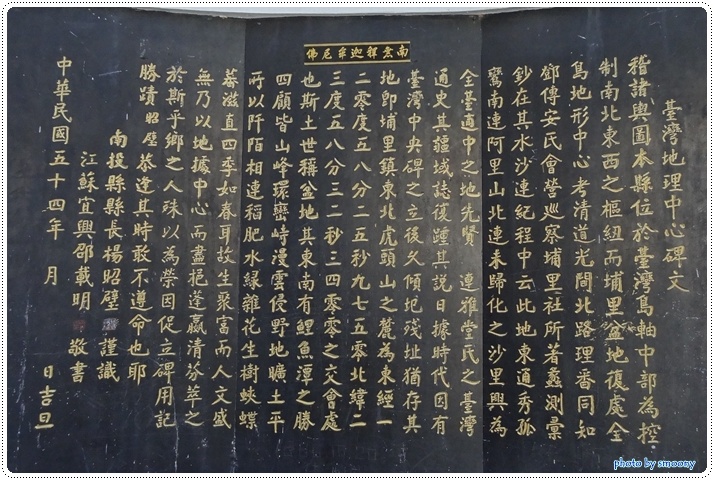 臺灣地理中心碑文
稽諸輿圖本縣位於臺灣島軸中部為控
制南北東西之樞紐而埔里盆地復處全
島地形中心考清道光間北路理番同知
鄧傳安氏會營巡察埔里社所著蠡測彙
鈔在其水沙連紀程中云此地東通秀孤
鸞南連阿里山北連未歸化之沙里興為
全臺適中之地先賢 連雅堂氏之臺灣
通史其疆域誌復踵其說日據時代因有
臺灣中央碑之立後久傾圯殘址猶存其
地卽埔里鎮東北虎頭山之麓為東經一
二零度五八分二五秒九七五零北緯二
三度五八分三二秒三四零零之交會處
也斯土世稱盆地其東南有鯉魚潭之勝
四顧皆山峰環巒峙漫雲侵野地曠土平
所以阡陌相連稻肥水綠雜花生樹蛺蝶
蕃滋直四季如春耳故生聚富而人文盛
無乃以地據中心而盡挹蓬瀛清芬萃之
於斯乎鄉之人殊以為榮因促立碑用記
勝蹟昭璧恭逢其時敢不遵命也耶
南投縣縣長楊昭璧 謹識
江蘇宜興邵載明 敬書
中華民國五十四年 月 日吉旦
南無釋迦牟尼佛
photo by smoony